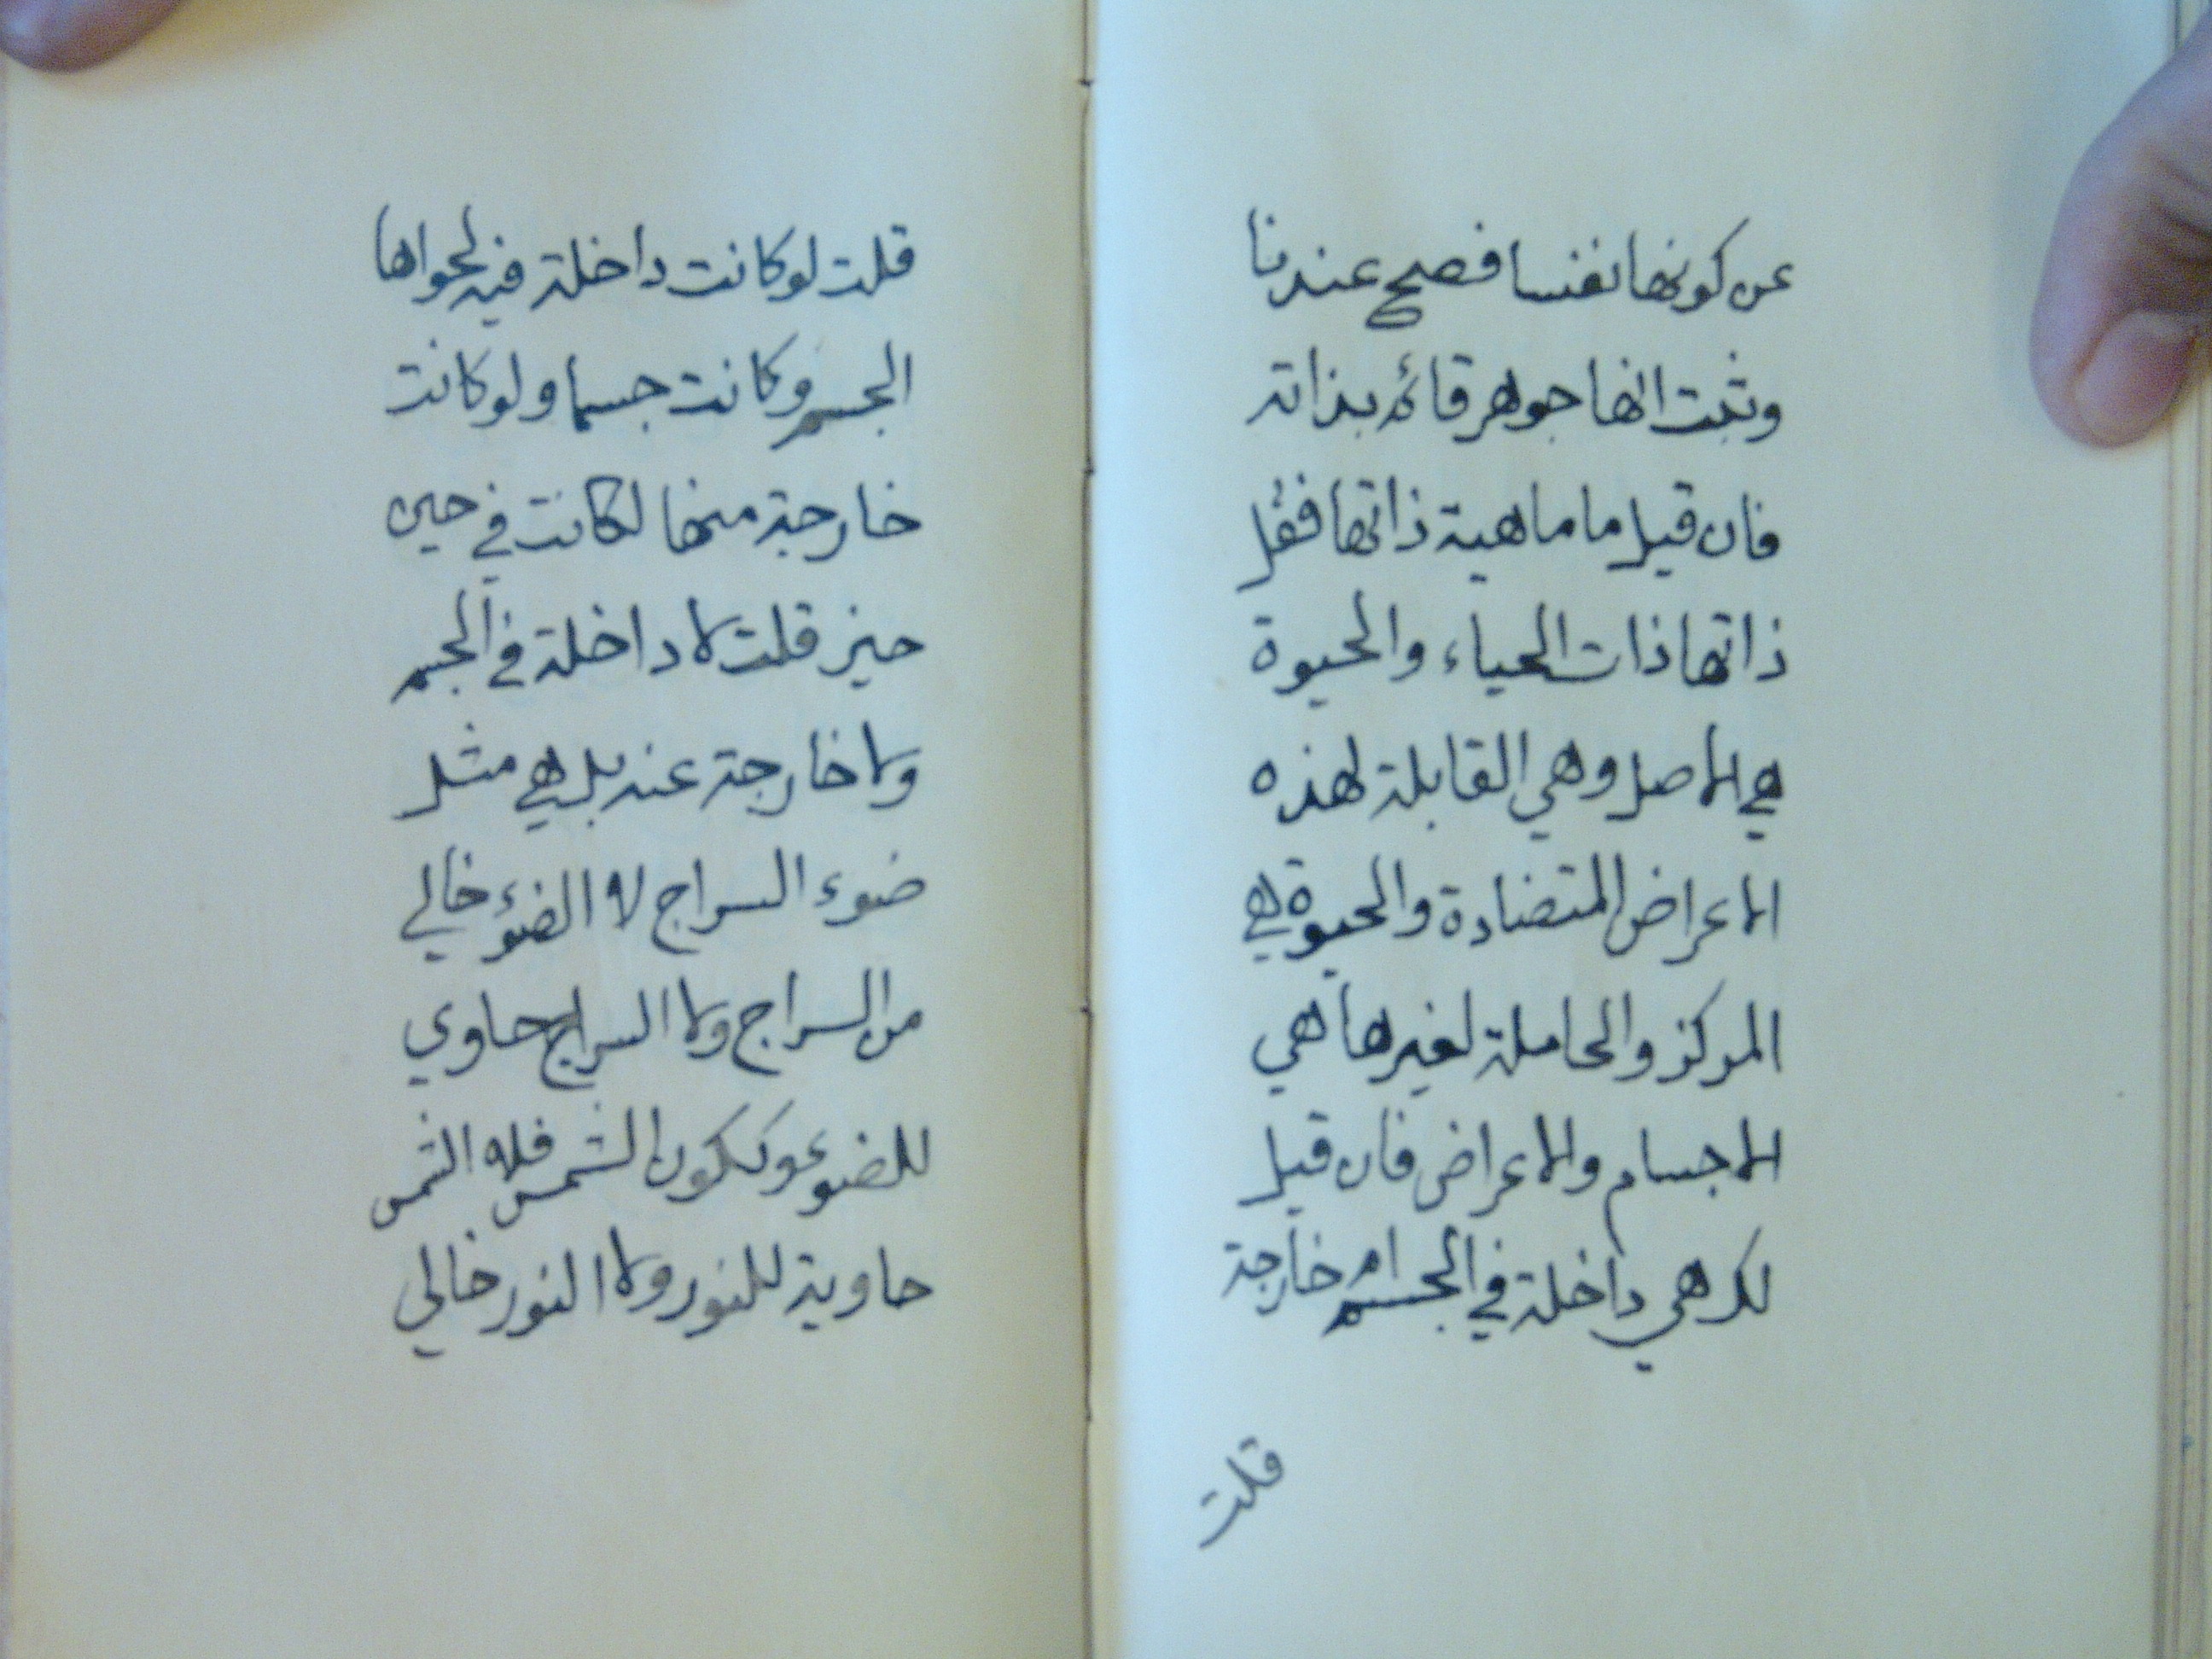 عن كونها نفسا فصح عندنا
وثبت انها جوهر قائم بذاته
فان قيل ما ماهية ذاتها فقل
ذاتها ذات الحياء والحيوة
هي الاصل وهي القابلة لهذه
الاعراض المتضادة والحيوة هي
المركز والحاملة لغيرها هي
الاجسام والاعراض فان قيل
لك هي داخلة في الجسم ام خارجة
قلت
قلت لو كانت داخلة فيه لحواها
الجسم وكانت جسما ولو كانت
خارجة منها لكانت في حين
حيز قلت لا داخلة في الجسم
ولا خارجة عنه بل هي مثل
ضوء السراج لا الضوء خالي
من السراج ولا السراج حاوي
للضوء وككون الشمس فلا الشمس
حاوية للنور ولا النور خالي